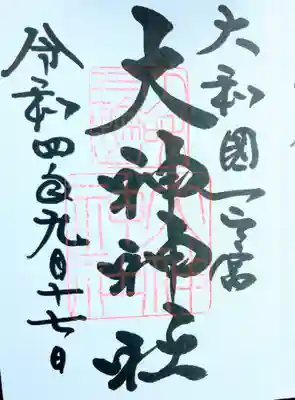 大和國一之宮
大神神社
令和四年九月十七日